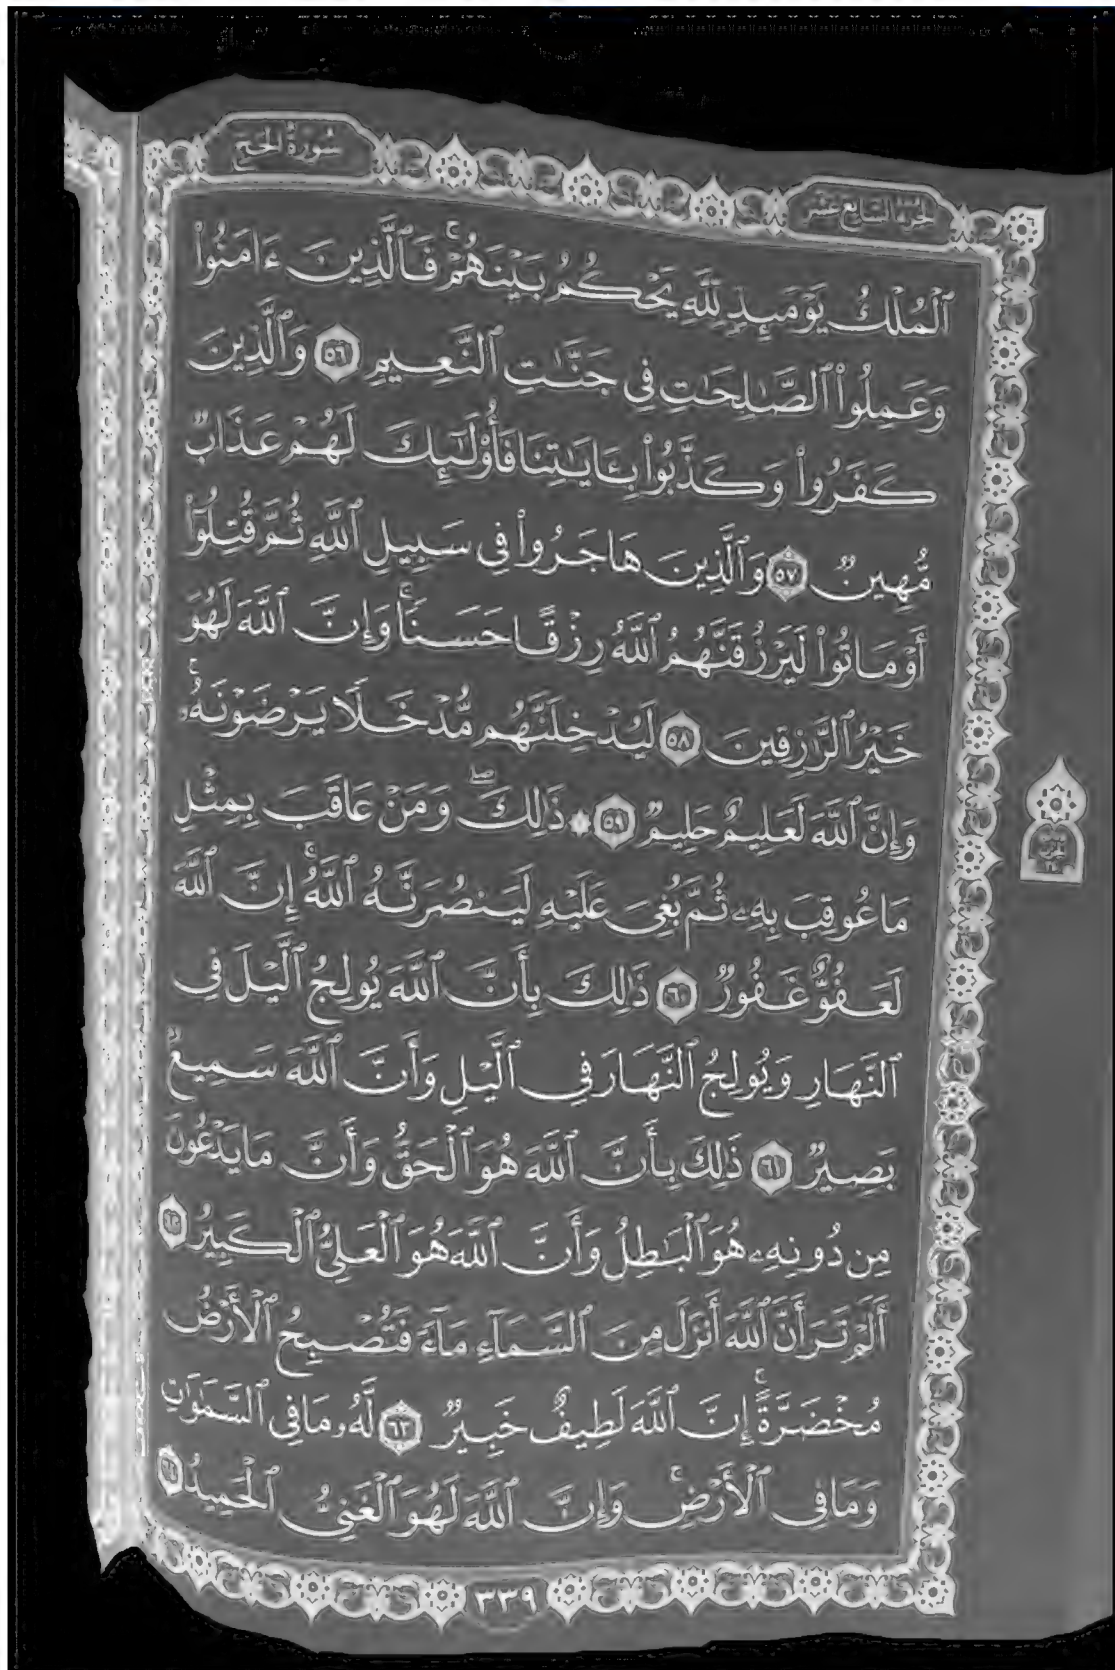 سُورَةُ الحَجِّ
الجزء السابع عشر
ٱلْمُلْكُ يَوْمَئِذٍ لِّلَّهِ يَحْكُمُ بَيْنَهُمْۚ فَٱلَّذِينَ ءَامَنُوا۟
وَعَمِلُوا۟ ٱلصَّٰلِحَٰتِ فِى جَنَّٰتِ ٱلنَّعِيمِ ٥٦ وَٱلَّذِينَ
كَفَرُوا۟ وَكَذَّبُوا۟ بِـَٔايَٰتِنَا فَأُو۟لَٰٓئِكَ لَهُمْ عَذَابٌ
مُّهِينٌ ٥٧ وَٱلَّذِينَ هَاجَرُوا۟ فِى سَبِيلِ ٱللَّهِ ثُمَّ قُتِلُوٓا۟
أَوْ مَاتُوا۟ لَيَرْزُقَنَّهُمُ ٱللَّهُ رِزْقًا حَسَنًاۚ وَإِنَّ ٱللَّهَ لَهُوَ
خَيْرُ ٱلرَّٰزِقِينَ ٥٨ لَيُدْخِلَنَّهُم مُّدْخَلًا يَرْضَوْنَهُۥۚ
وَإِنَّ ٱللَّهَ لَعَلِيمٌ حَلِيمٌ ٥٩ ۞ ذَٰلِكَۖ وَمَنْ عَاقَبَ بِمِثْلِ
مَا عُوقِبَ بِهِۦ ثُمَّ بُغِىَ عَلَيْهِ لَيَنصُرَنَّهُ ٱللَّهُۚ إِنَّ ٱللَّهَ
لَعَفُوٌّ غَفُورٌ ٦٠ ذَٰلِكَ بِأَنَّ ٱللَّهَ يُولِجُ ٱلَّيْلَ فِى
ٱلنَّهَارِ وَيُولِجُ ٱلنَّهَارَ فِى ٱلَّيْلِ وَأَنَّ ٱللَّهَ سَمِيعٌۢ
بَصِيرٌ ٦١ ذَٰلِكَ بِأَنَّ ٱللَّهَ هُوَ ٱلْحَقُّ وَأَنَّ مَا يَدْعُونَ
مِن دُونِهِۦ هُوَ ٱلْبَٰطِلُ وَأَنَّ ٱللَّهَ هُوَ ٱلْعَلِىُّ ٱلْكَبِيرُ ٦٢
أَلَمْ تَرَ أَنَّ ٱللَّهَ أَنزَلَ مِنَ ٱلسَّمَآءِ مَآءً فَتُصْبِحُ ٱلْأَرْضُ
مُخْضَرَّةًۗ إِنَّ ٱللَّهَ لَطِيفٌ خَبِيرٌ ٦٣ لَّهُۥ مَا فِى ٱلسَّمَٰوَٰتِ
وَمَا فِى ٱلْأَرْضِۗ وَإِنَّ ٱللَّهَ لَهُوَ ٱلْغَنِىُّ ٱلْحَمِيدُ ٦٤
٣٣٩